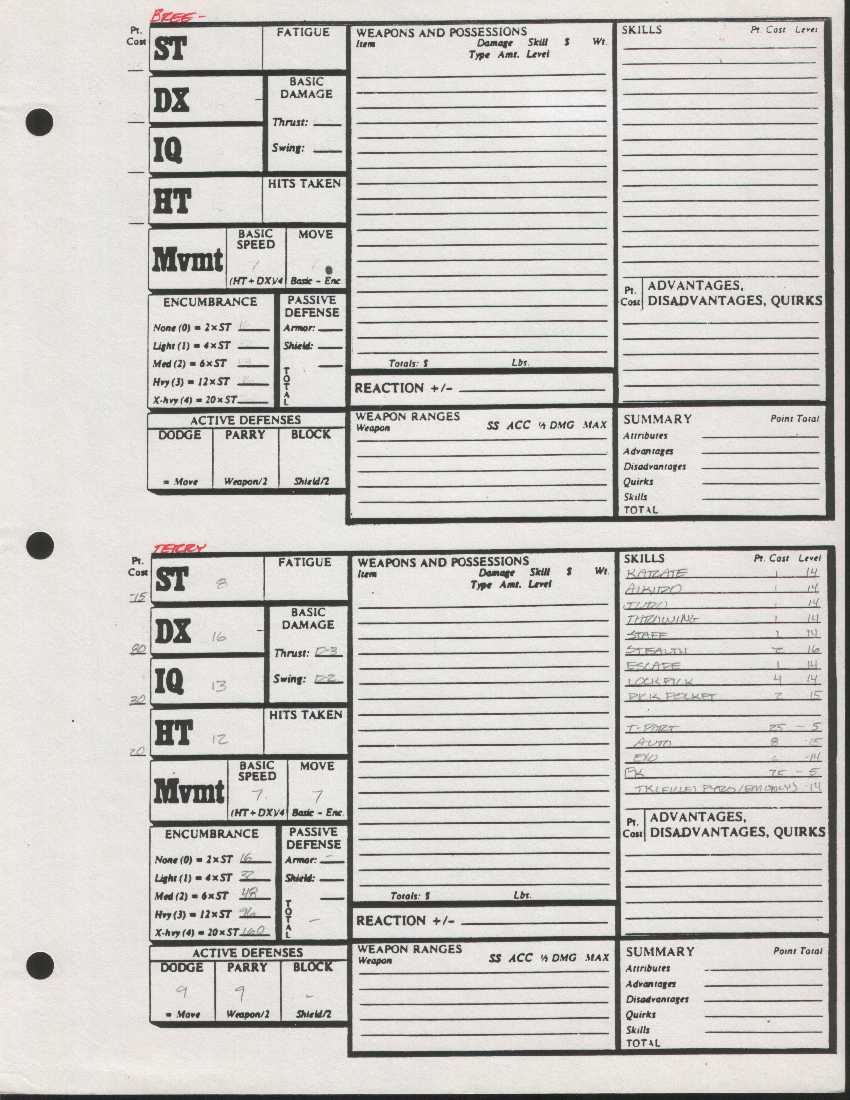 BREE-
Pt. Cost
ST
FATIGUE
DX
BASIC DAMAGE
Thrust:
Swing:
IQ
HT
HITS TAKEN
Mvmt
BASIC SPEED
(HT + DX)/4
MOVE
Basic - Enc.
ENCUMBRANCE
None (0) = 2×ST
Light (1) = 4×ST
Med (2) = 6×ST
Hvy (3) = 12×ST
X-hvy (4) = 20×ST
PASSIVE DEFENSE
Armor:
Shield:
TOTAL
ACTIVE DEFENSES
DODGE PARRY BLOCK
= Move Weapon/2 Shield/2
WEAPONS AND POSSESSIONS
Item Damage Skill $ Wt.
Type Amt. Level
Totals: $ Lbs.
REACTION +/-
WEAPON RANGES
Weapon SS ACC ½ DMG MAX
SKILLS Pt. Cost Level
Pt. Cost
ADVANTAGES,
DISADVANTAGES, QUIRKS
SUMMARY Point Total
Attributes
Advantages
Disadvantages
Quirks
Skills
TOTAL
TERRY
Pt. Cost
-15 ST 8
FATIGUE
80 DX 16
BASIC DAMAGE
Thrust: D-3
Swing: D-2
30 IQ 13
20 HT 12
HITS TAKEN
Mvmt
BASIC SPEED
7.
(HT + DX)/4
MOVE
7
Basic - Enc.
ENCUMBRANCE
None (0) = 2×ST 16
Light (1) = 4×ST 32
Med (2) = 6×ST 48
Hvy (3) = 12×ST 96
X-hvy (4) = 20×ST 160
PASSIVE DEFENSE
Armor: -
Shield:
TOTAL -
ACTIVE DEFENSES
DODGE PARRY BLOCK
9 9 -
= Move Weapon/2 Shield/2
WEAPONS AND POSSESSIONS
Item Damage Skill $ Wt.
Type Amt. Level
Totals: $ Lbs.
REACTION +/-
WEAPON RANGES
Weapon SS ACC ½ DMG MAX
SKILLS Pt. Cost Level
KARATE 1 14
AIKIDO 1 14
JUDO 1 14
THRAWING 1 14
STAFF 1 14
STEALTH 2 16
ESCAPE 1 14
LOCKPICK 4 14
PICK POCKET 2 15
T-PORT 25 - 5
AUTO 8 -15
EXO -14
PK 25 - 5
-14
Pt. Cost
ADVANTAGES,
DISADVANTAGES, QUIRKS
SUMMARY Point Total
Attributes
Advantages
Disadvantages
Quirks
Skills
TOTAL